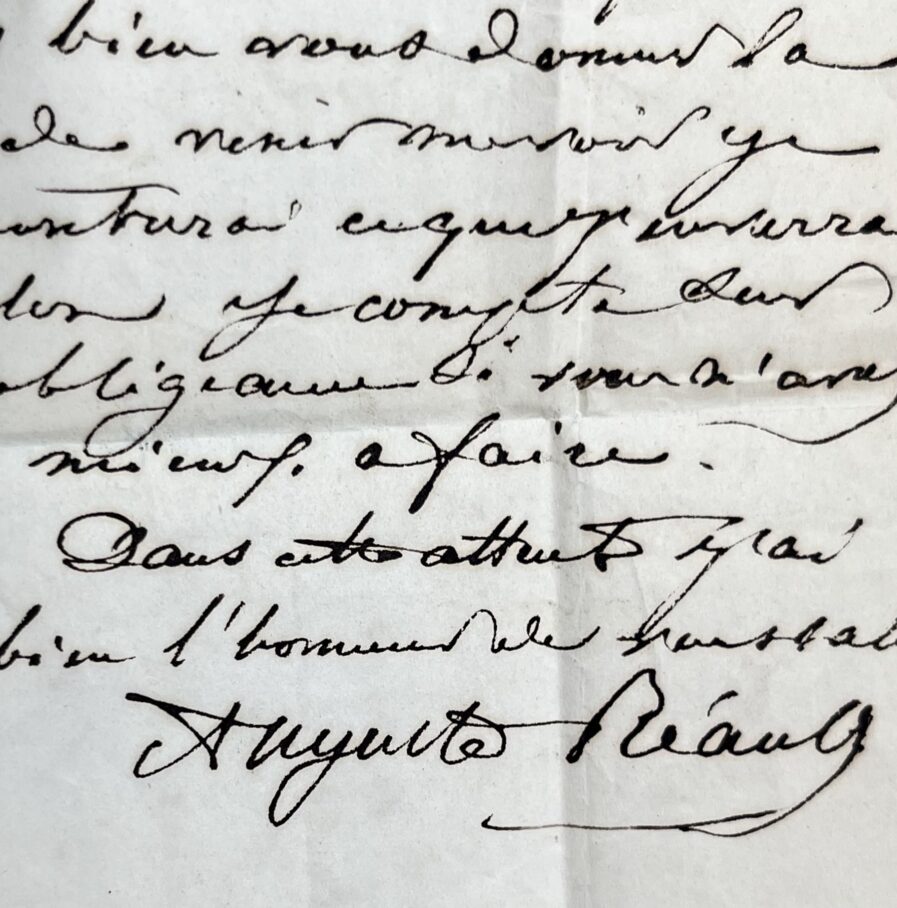 bien vous donner la
de venir me voir je
conterai ce qui en
je compte sur
obligeance si vous n'avez
mieux a faire.
Dans cette attente j'ai
bien l'honneur de vous sal
Auguste Réault